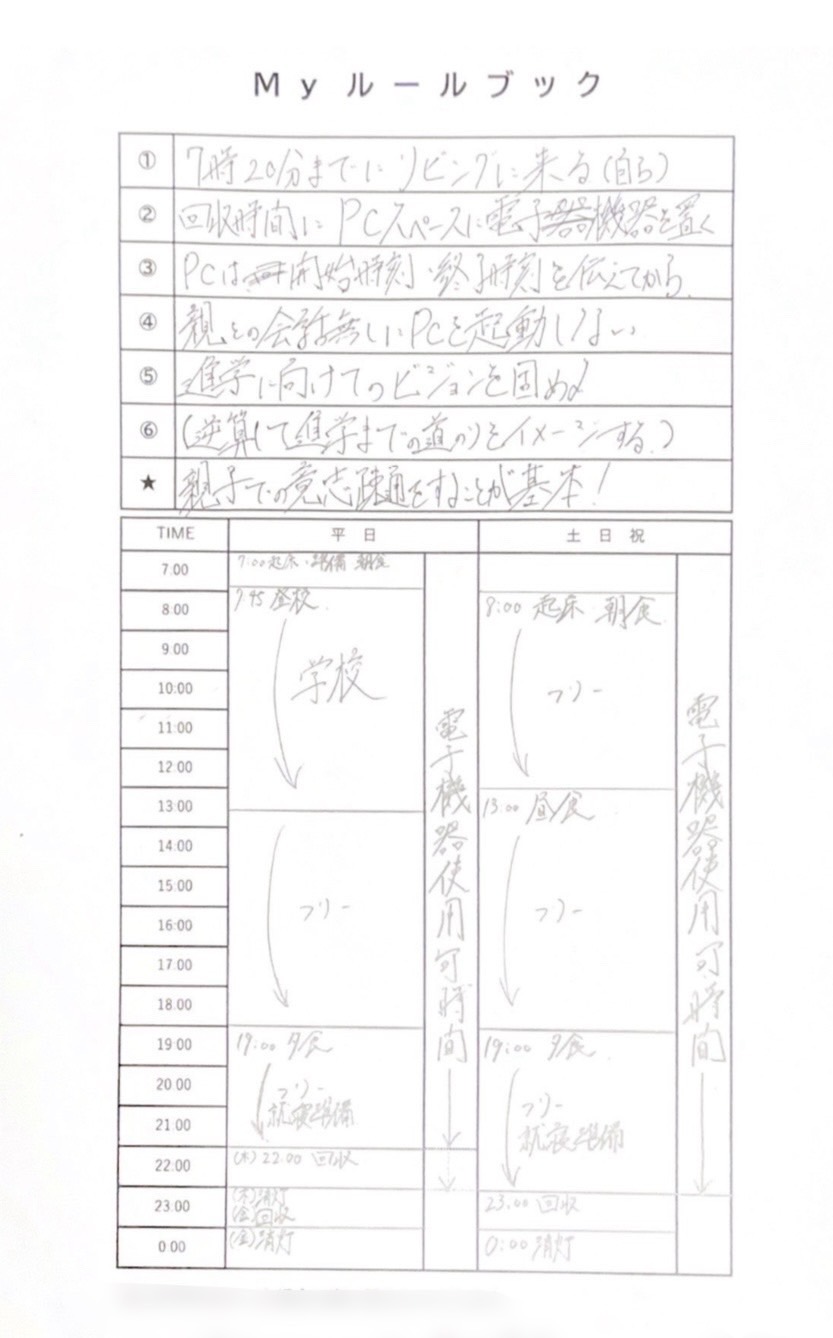 Myルールブック
① 7時20分までにリビングに来る(自ら)
② 回収時間にPCスペースに電子機器を置く
③ PCは開始時刻・終了時刻を伝えてから
④ 親との会話無しにPCを起動しない
⑤ 進学に向けてのビジョンを固める
⑥ (逆算して進学までの道のりをイメージする。)
★ 親子での意志疎通をすることが基本!
TIME 平日 土日祝
7:00 7:00起床・準備 朝食
8:00 7:45登校 8:00 起床・朝食
9:00
10:00 学校 フリー
11:00
12:00
13:00 13:00 昼食
14:00
15:00
16:00 フリー フリー
17:00
18:00
19:00 19:00 夕食 19:00 夕食
20:00 フリー フリー
21:00 就寝準備 就寝準備
22:00 (木)22:00 回収
23:00 (木)消灯 23:00 回収
(金)回収
0:00 (金)消灯 0:00 消灯
電子機器使用可時間
電子機器使用可時間